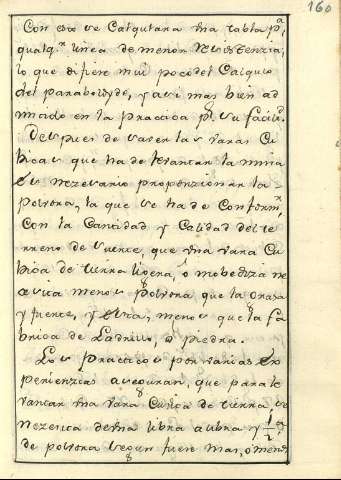 160
Con esto se Calqulara una tabla pª
qualqª linea de menor Resistenzia,
lo que difiere mui poco del Calqulo
del paraboloyde, y asi mas bien ad
mitido en la practica pr su facilidd.
Despues de saver las varas Cu
bicas que ha de levantar la mina
es nezesario proporzionar la
polvora, la que se ha de Conformr
Con la Cantidad y Calidad del te
rreno de suerte, que una vara Cu
bica de tierra ligera, o mobediza ne
zesita menos Polvora, que la Grasa
y fuerte, y esta, menos que la fa
brica de Ladrillo, o piedra.
Los Practicos por varias Ex
perienzias aseguran, que para le
vantar una vara Cubica de tierra, se
Nezesita de una libra a libra y 1/2
de polvora segun fuere mas, o menos